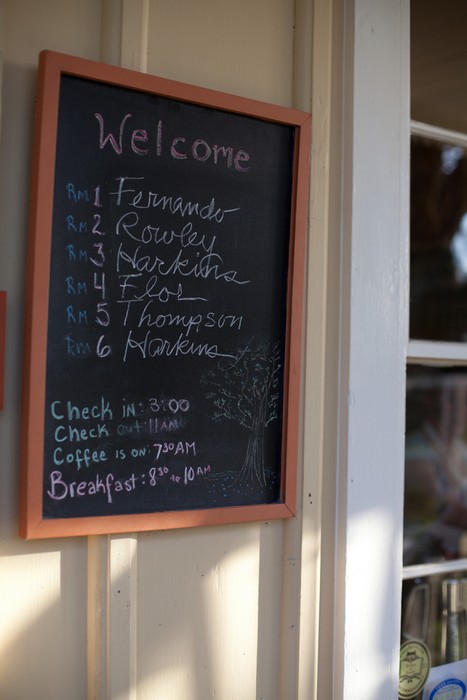 Welcome
Rm 1 Fernando
Rm 2 Rowley
Rm 3 Harkins
Rm 4 Flos
Rm 5 Thompson
Rm 6 Harkins
Check in: 3:00
Check out: 11 AM
Coffee is on: 7³⁰ AM
Breakfast: 8³⁰ to 10 AM